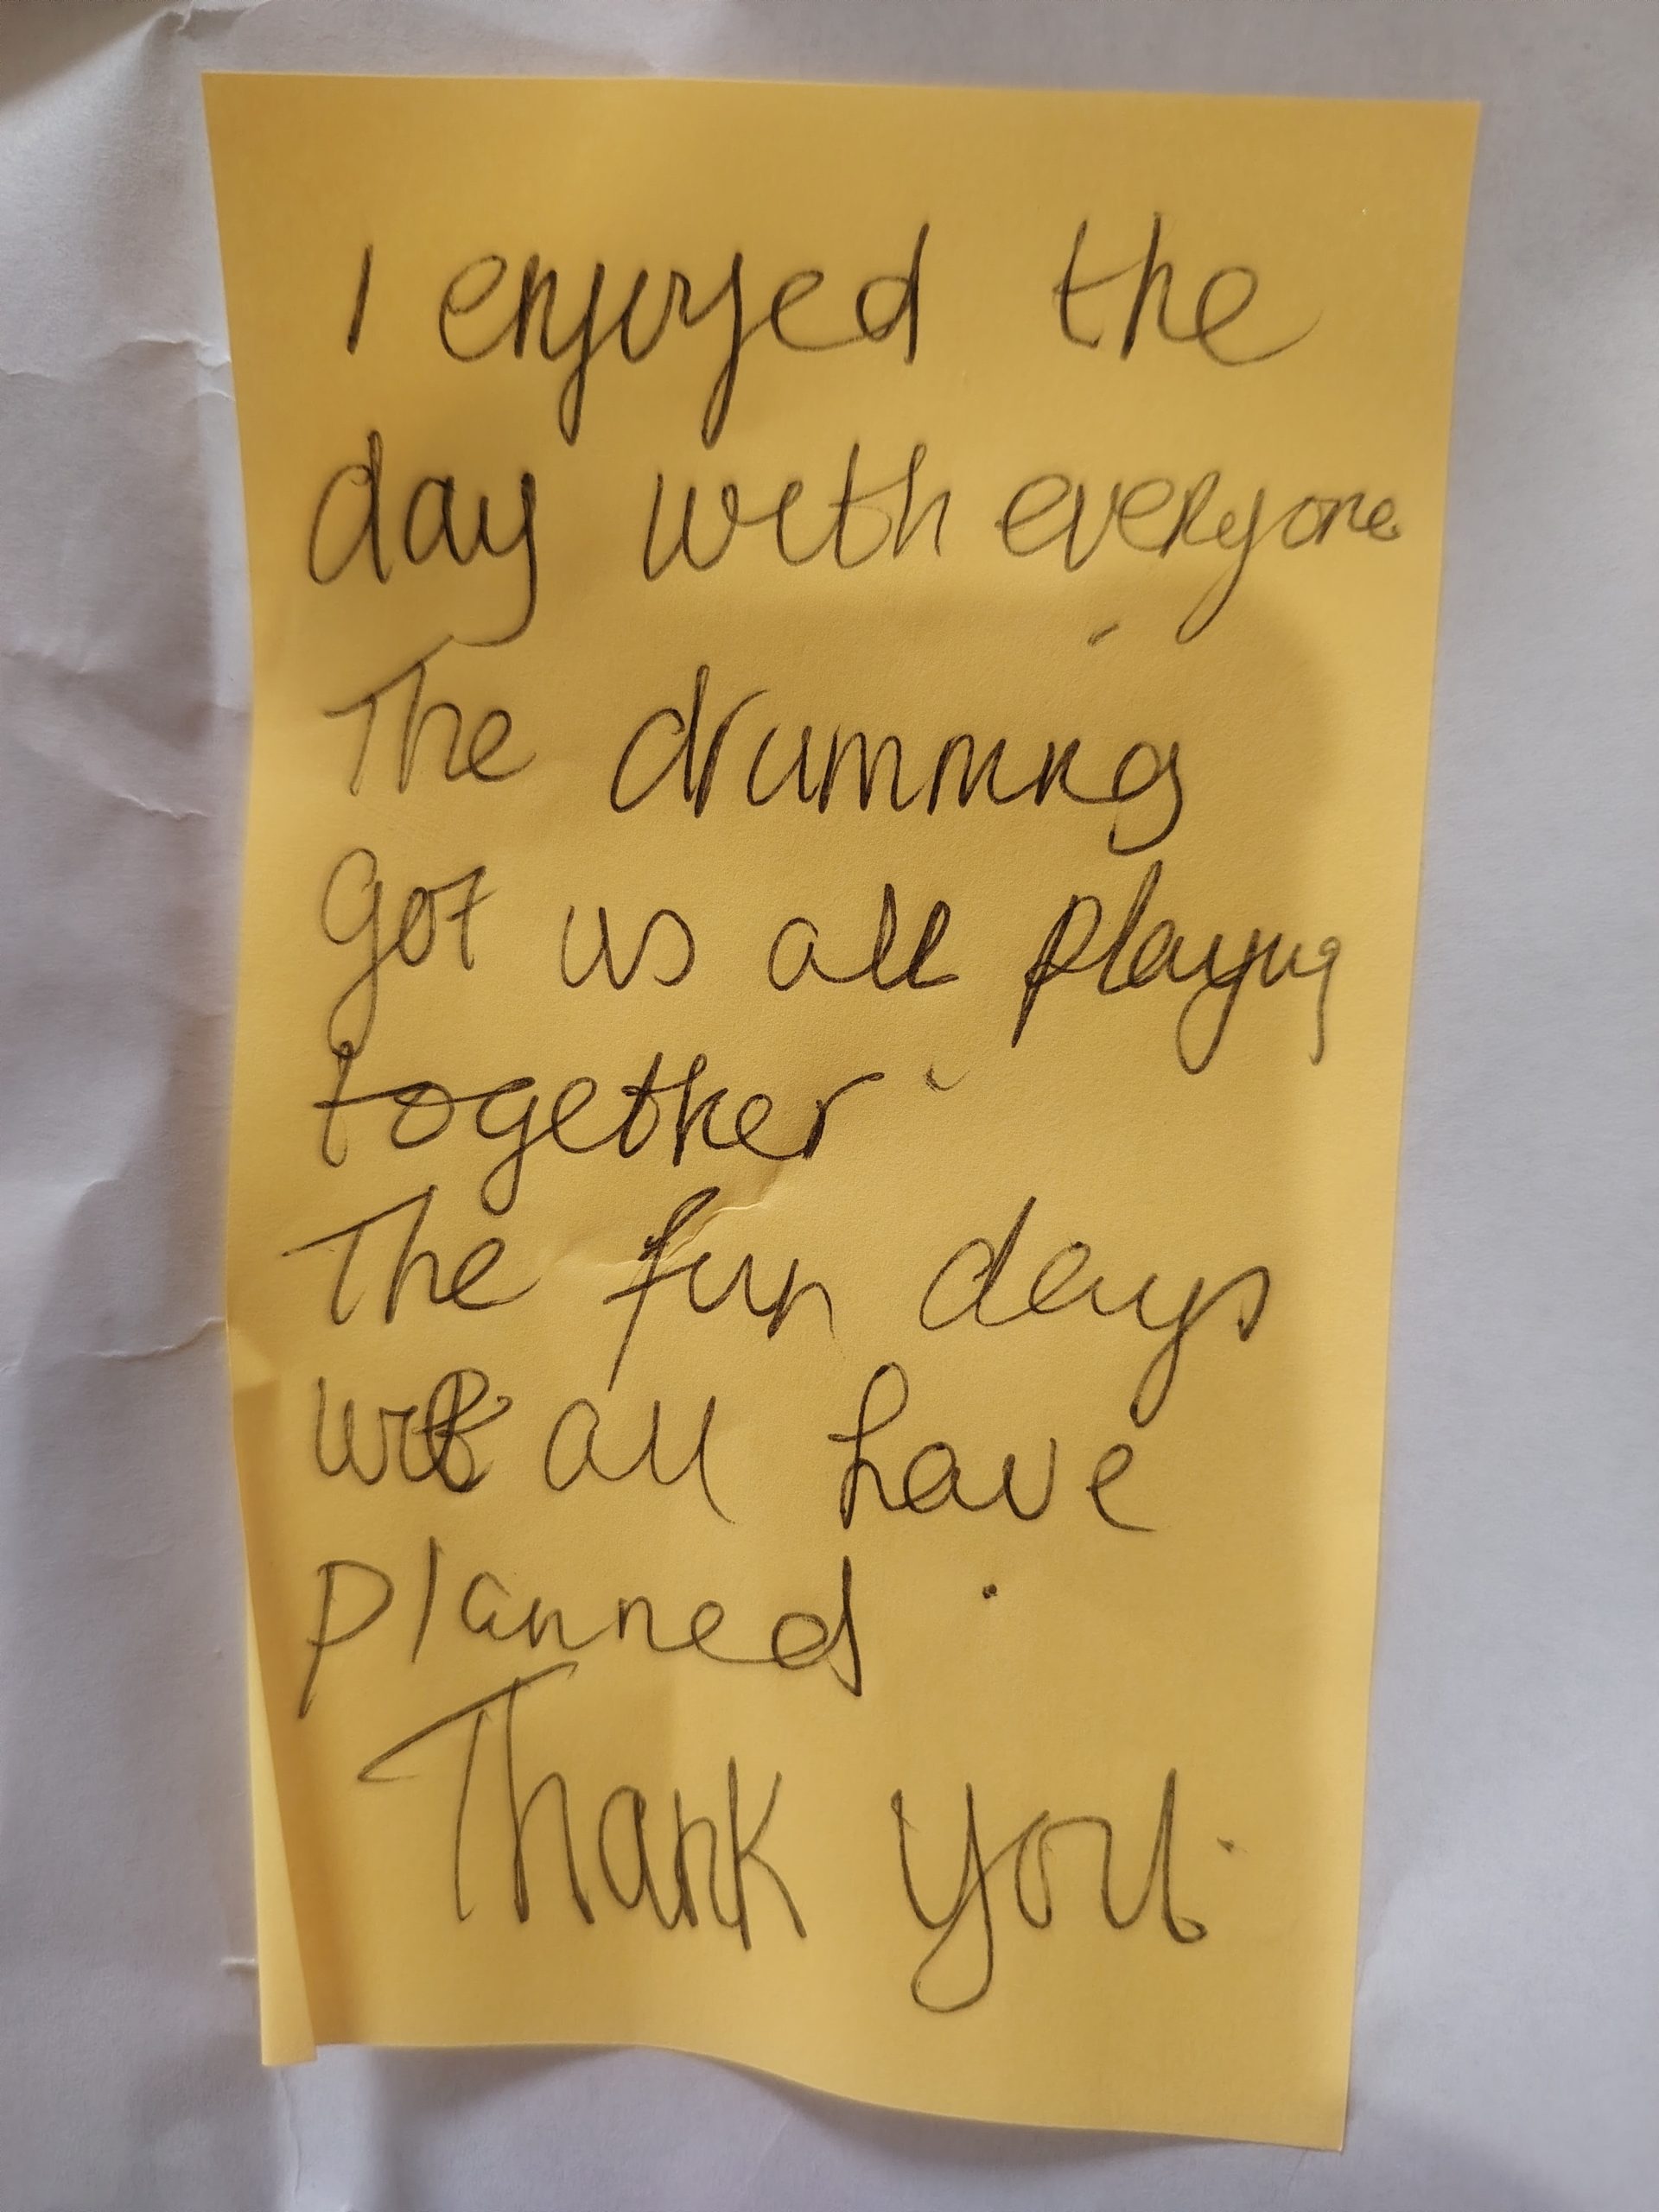 I enjoyed the
day with everyone
The drumming
got us all playing
together.
The fun days
we all have
planned.
Thank you.